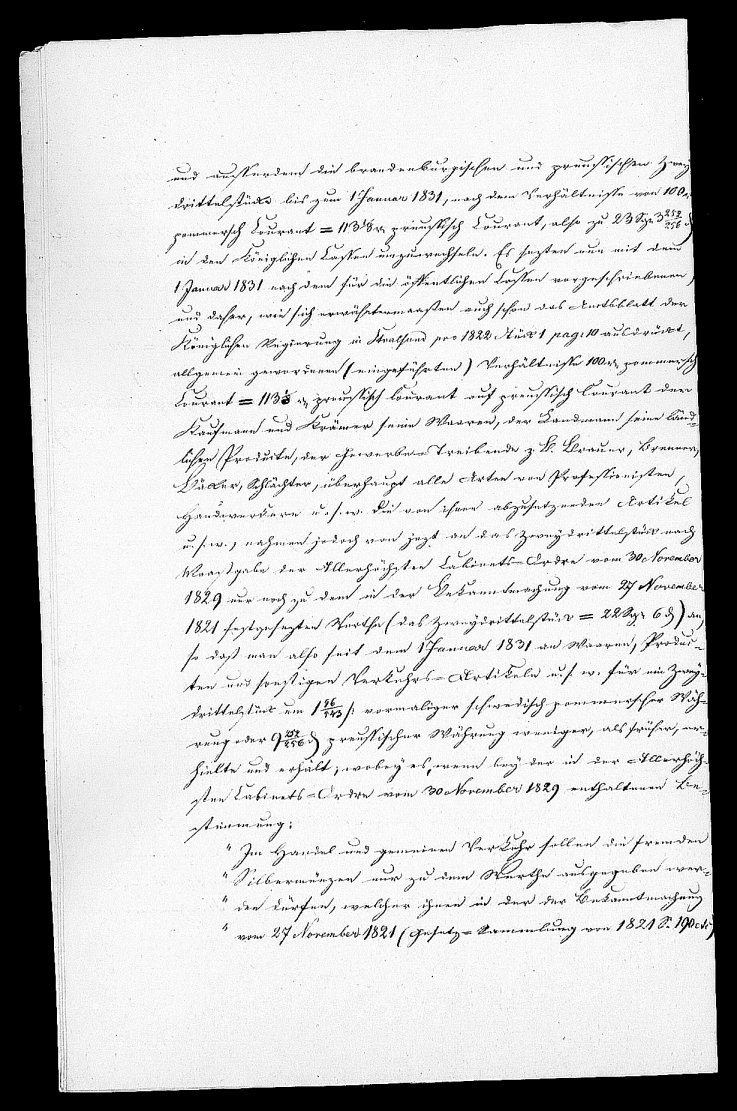 und ausserdem die brandenburgischen und preussischen Zwey-
drittelstücke bis zum 1 Januar 1831, nach dem Verhältnisse von 100 rt
pommersch Courant = 113 1/3 rt preussisch Courant, also zu 23 Sgr 3 252/256 d
in den Königlichen Cassen einzuwechseln. Es sezten nun mit dem
1 Januar 1831 nach dem für die öffentlichen Cassen vorgeschriebenen,
und daher, wie sich erwähntermaassen auch schon das Amtsblatt der
Königlichen Regierung in Stralsund pro 1822 Stück 1 pag: 10 ausdrückt,
allgemein gewordenen (eingeführten) Verhältnisse 100 rt pommersch
Courant = 113 1/3 rt preussisch Courant auf preussisch Courant der
Kaufmann und Krämer seine Waaren, der Landmann seine länd-
lichen Produkte, der Gewerbe-Treibende z. B. Brauer, Brenner,
Bäcker, Schlächter, überhaupt alle Arten von Professionisten,
Handwerkern u. s. w. die von ihnen abzusetzenden Artikel
u. s. w., nahmen jedoch von jezt an das Zweydrittelstück nach
Maasgabe der Allerhöchsten Cabinets-Ordre vom 30 November
1829 nur noch zu dem in der Bekanntmachung vom 27 November
1821 festgesezten Werthe (das Zweydrittelstück = 22 Sgr 6 d) an,
so daß man also seit dem 1 Januar 1831 an Waaren, Produk-
ten und sonstigen Verkehrs-Artikeln u. s. w. für ein Zwey-
drittelstück um vormaliger schwedisch pommerscher Wäh-
rung oder 9 252/256 d preussischer Währung weniger, als früher, er-
hielte und erhält; wobey es, wenn bey der in der Allerhöch-
sten Cabinets-Ordre vom 30 November 1829 enthaltenen Be-
stimmung:
" Im Handel und gemeinen Verkehr sollen die fremden
" Silbermünzen nur zu dem Werthe ausgegeben wer-
" den dürfen, welcher ihnen in der der Bekanntmachung
" vom 27 November 1821 (Gesetz-Sammlung von 1821 S. 190